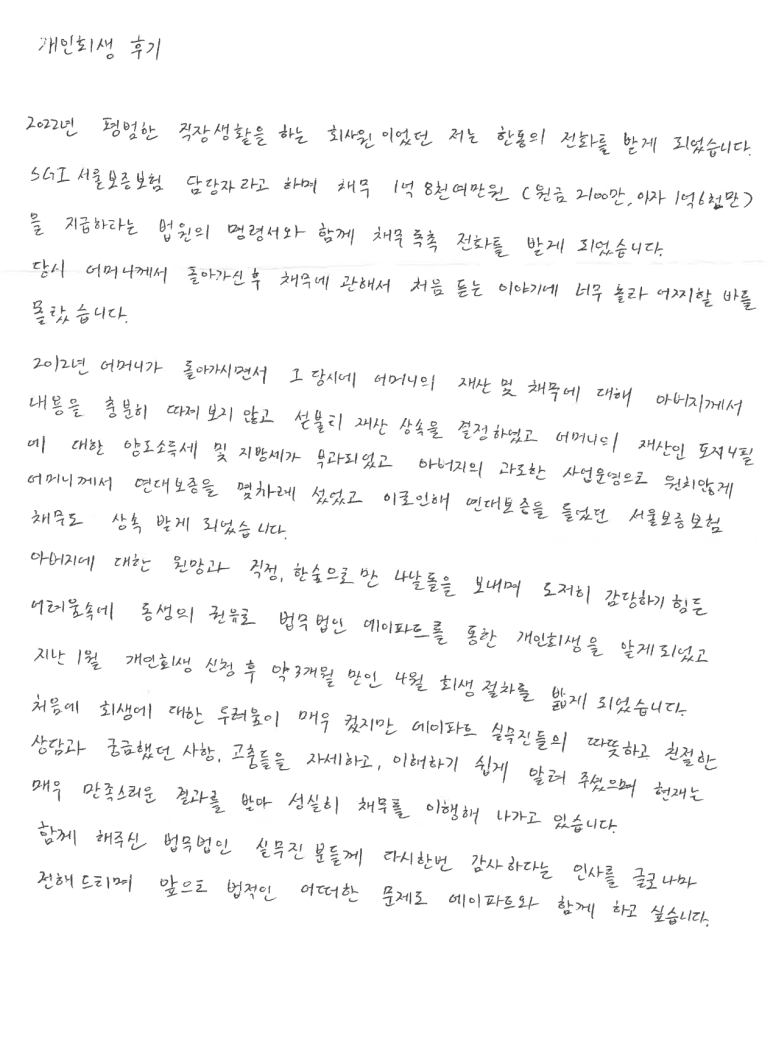 개인회생 후기
2022년 평범한 직장생활을 하는 회사원이었던 저는 한통의 전화를 받게 되었습니다.
SGI 서울보증보험 담당자라고 하며 채무 1억 8천여만원 (원금 2100만, 이자 1억6천만)
을 지급하라는 법원의 명령서와 함께 채무독촉 전화를 받게 되었습니다.
당시 어머니께서 돌아가신 후 채무에 관해서 처음 듣는 이야기에 너무 놀라 어찌할 바를
몰랐습니다.
2012년 어머니가 돌아가시면서 그 당시에 어머니의 재산 및 채무에 대해 아버지께서
내용을 충분히 따져보지 않고 섣불리 재산 상속을 결정하였고 어머니의 재산인 토지4필
에 대한 양도소득세 및 지방세가 부과되었고 아버지의 과도한 사업운영으로 원치않게
어머니께서 연대보증을 몇차례 섰었고 이로인해 연대보증을 들었던 서울보증보험
채무도 상속 받게 되었습니다.
아버지에 대한 원망과 걱정, 한숨으로 만 나날들을 보내며 도저히 감당하기 힘든
어려움속에 동생의 권유로 법무법인 에이파트를 통한 개인회생을 알게되었고
지난 1월 개인회생 신청 후 약 3개월 만인 4월 회생 절차를 밟게 되었습니다.
처음에 회생에 대한 두려움이 매우 컸지만 에이파트 실무진들의 따뜻하고 친절한
상담과 궁금했던 사항, 고충들을 자세하고, 이해하기 쉽게 알려 주셨으며 현재는
매우 만족스러운 결과를 받아 성실히 채무를 이행해 나가고 있습니다.
함께 해주신 법무법인 실무진분들께 다시한번 감사하다는 인사를 글로나마
전해드리며 앞으로 법적인 어떠한 문제도 에이파트와 함께 하고 싶습니다.